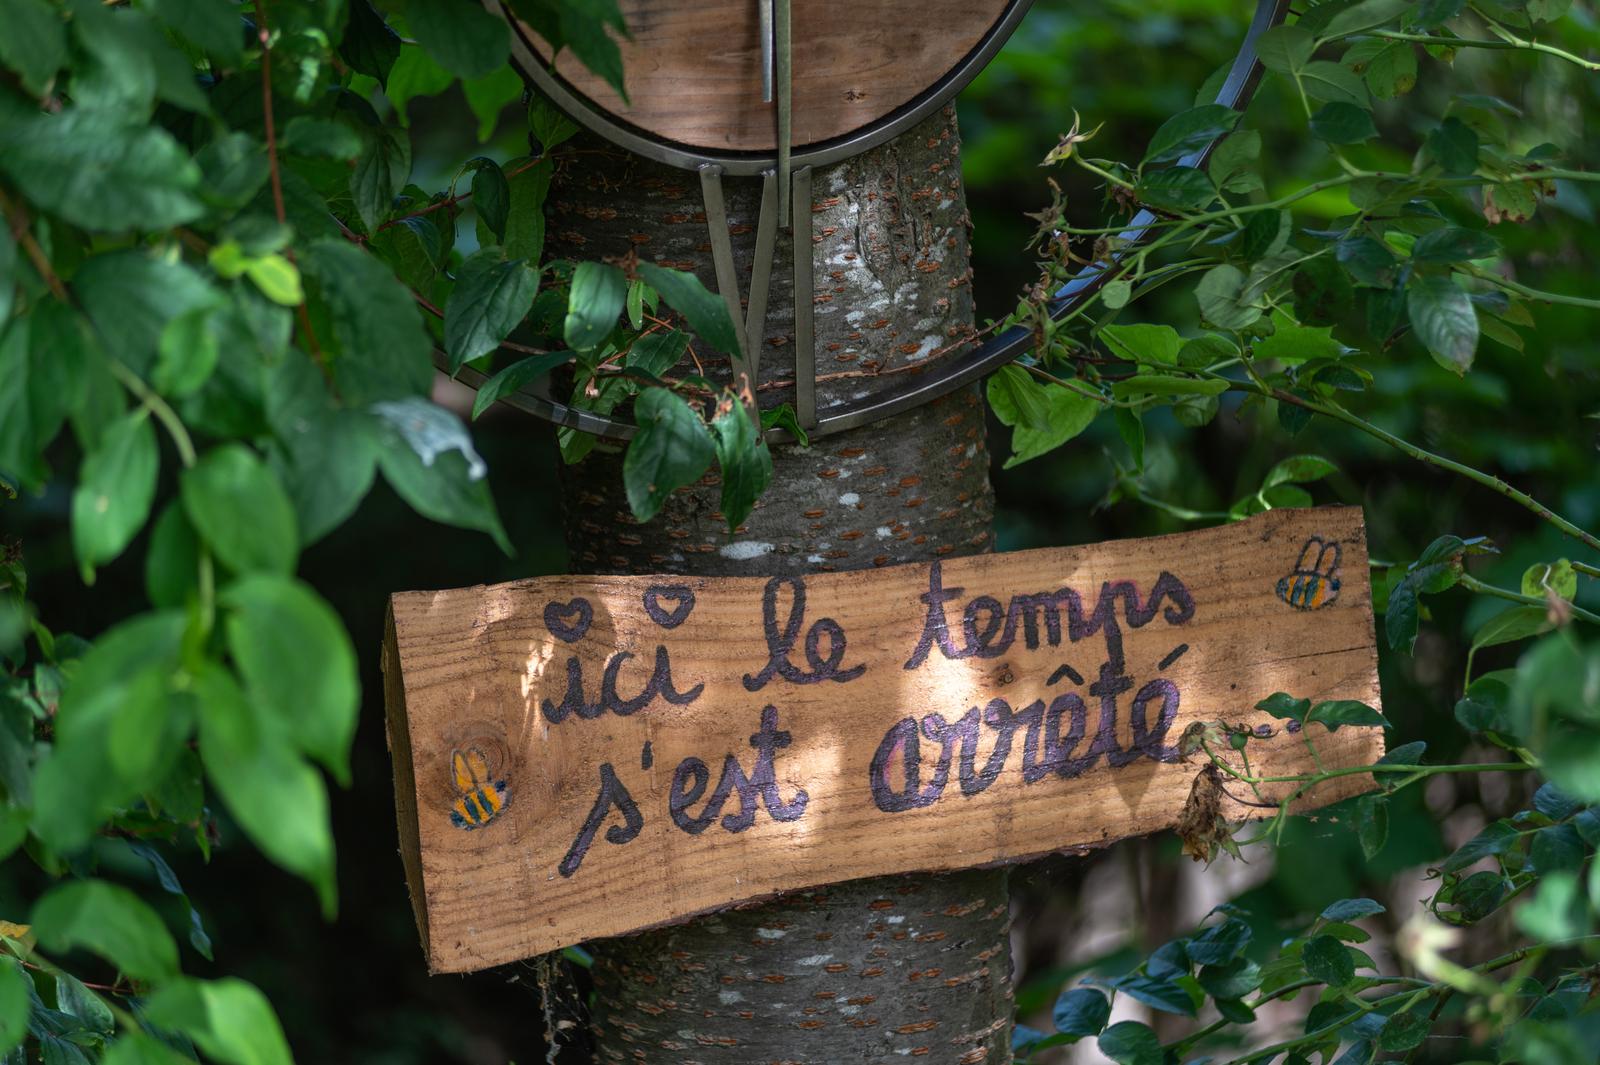 ici le temps
s'est arrêté...